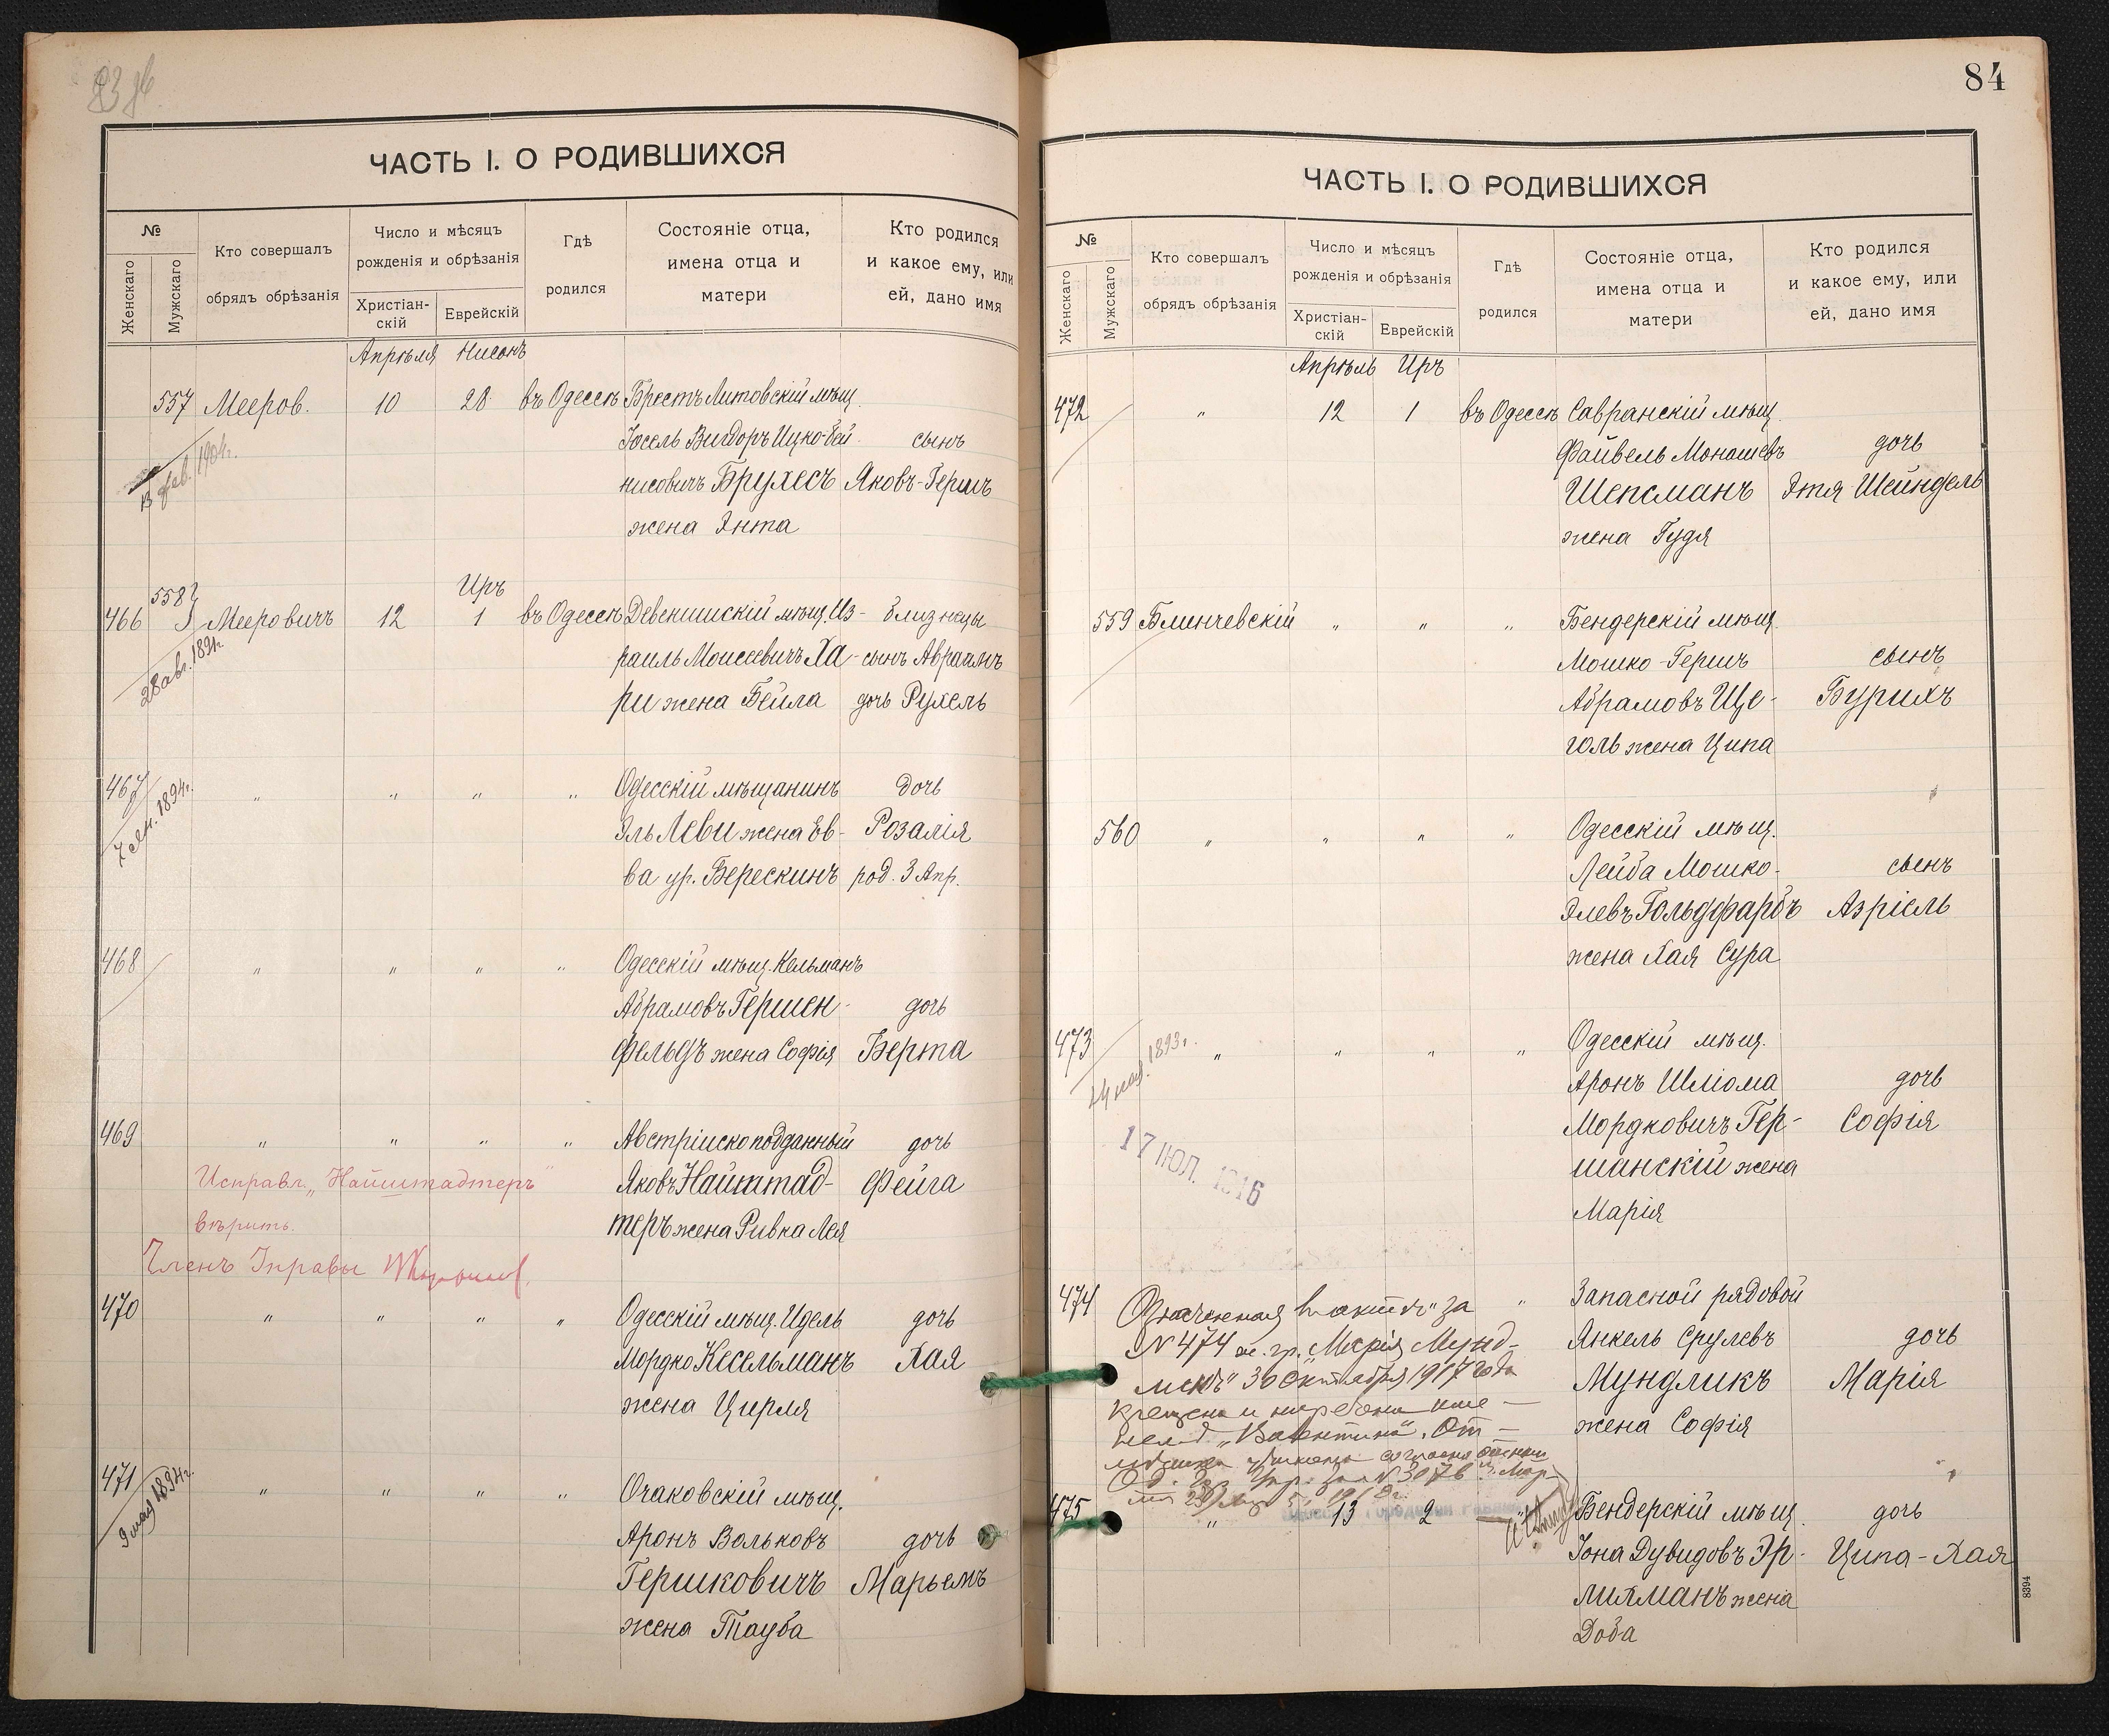 ЧАСТЬ I. О РОДИВШИХСЯ
№
Женскаго
Мужскаго
Кто совершалъ
обрядъ обрѣзанія
Число и мѣсяцъ
рожденія и обрѣзанія
Христіан-
скій
Еврейскій
Гдѣ
родился
Состояніе отца,
имена отца и
матери
Кто родился
и какое ему, или
ей, дано имя
Апрѣля Нисонъ
557 Мееров. 10 28 въ Одессѣ Брестъ Литовскій мѣщ.
Іосель Вигдоръ Ицко-Бей- сынъ
нисовичъ Брухесъ Яковъ-Гершъ
жена Энта
13 фев. 1904г.
Иръ
466 558 Мееровичъ 12 1 въ Одессѣ Девенишскій мѣщ. Из- близнецы
раиль Моисеевичъ Ха- сынъ Авраамъ
ри жена Бейла дочь Рухель
28 авг. 1891г.
467 " " " " Одесскій мѣщанинъ дочь
Эль Леви жена Ев- Розалія
ва ур. Берескинъ род. 3 Апр.
1894г.
468 " " " " Одесскій мѣщ. Кельманъ
Абрамовъ Гершен- дочь
фельдъ жена Софія Берта
469 " " " " Австрійскоподданный дочь
Яковъ Найштад- Фейга
теръ жена Ривка Лея
Исправл. „Найштадтеръ"
вѣрить.
Членъ Управы
470 " " " " Одесскій мѣщ. Идель дочь
Мордко Кесельманъ Хая
жена Цирля
471 " " " " Очаковскій мѣщ.
Аронъ Вольковъ дочь
Гершковичъ Марьемъ
жена Тауба
9 мая 1894г.
84
ЧАСТЬ I. О РОДИВШИХСЯ
№
Женскаго
Мужскаго
Кто совершалъ
обрядъ обрѣзанія
Число и мѣсяцъ
рожденія и обрѣзанія
Христіан-
скій
Еврейскій
Гдѣ
родился
Состояніе отца,
имена отца и
матери
Кто родился
и какое ему, или
ей, дано имя
Апрѣль Иръ
472 " 12 1 въ Одессѣ Савранскій мѣщ.
Файвель Монашевъ дочь
Шепсманъ Этя Шейндель
жена Гудя
559 Блинчевскій " " " Бендерскій мѣщ.
Мошко-Гершъ сынъ
Абрамовъ Ще- Бурихъ
голь жена Ципа
560 " " " " Одесскій мѣщ.
Лейба Мошко- сынъ
Элевъ Гольдфарбъ Азріель
жена Хая Сура
473 " " " " Одесскій мѣщ.
Аронъ Шліома дочь
Мордковичъ Гер- Софія
шанскій жена
Марія
1893г.
17 ІЮЛ. 1916
474 " Запасной рядовой
Янкель Срулевъ дочь
Мундликъ Марія
жена Софія
Означенная въ актѣ за
№ 474 ж. гр. „Марія Мунд-
ликъ" 30 октября 1917 года
крещена и наречена име-
нем „Валентина". От-
475 " 13 2 " Бендерскій мѣщ. дочь
Іона Дувидовъ Эр- Ципа-Хая
лихманъ жена
Доба
8394